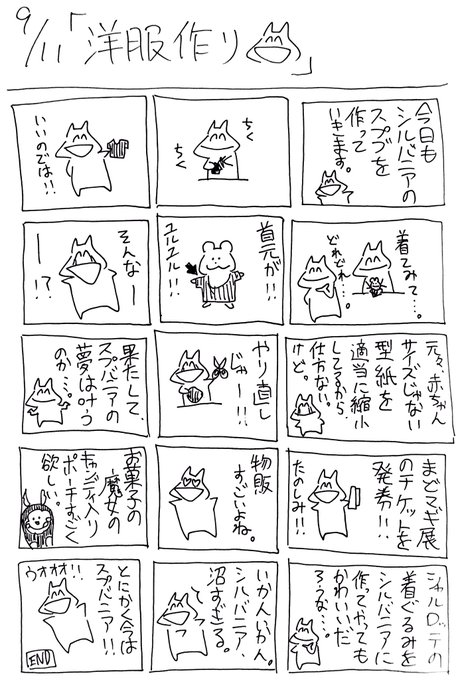 9/11「洋服作り」
今日も
シルバニアの
スプブを
作って
いきます。
ちく
ちく
いいのでは!!
着てみて…。
どれどれ…。
首元が!!
ユルユル!!
そんなー
ー!?
元々、赤ちゃん
サイズじゃない
型紙を
適当に縮小
してるから
仕方ない。
けど。
やり直し
じゃー!!
果たして、
スプバニアの
夢は叶う
のか…。
まどマギ展
のチケットを
発券!!
たのしみ!!
物販
すごいよね。
お菓子の
魔女の
キャンディ入り
ポーチすごく
欲しい。
シャルロッテの
着ぐるみを
シルバニアに
作ってやっても
かわいいだ
ろうな…。
いかんいかん。
シルバニア、
沼すぎる。
とにかく今は
スプバニア!!
ウオオオ!!
END